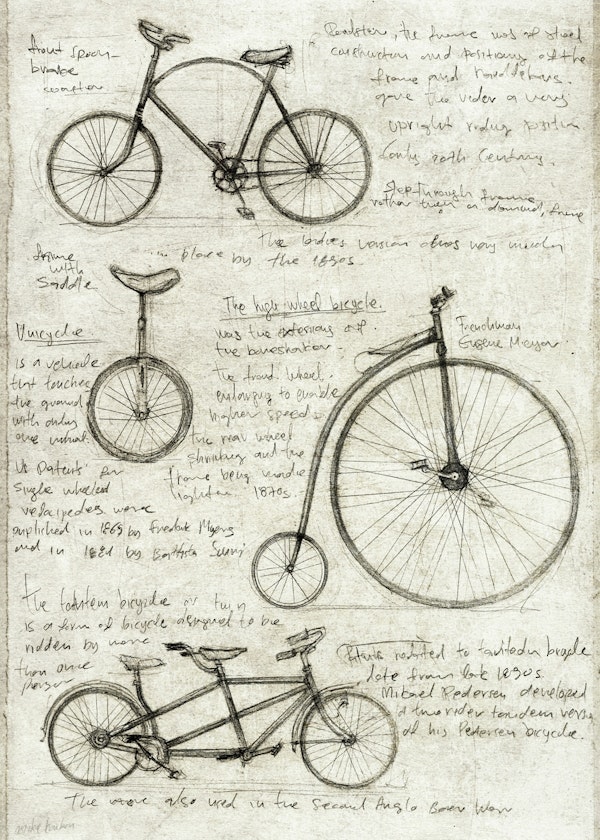 front spoon
brake
Roadster, the frame was of steel
construction and positions of the
frame and handlebars.
gave the rider a very
upright riding position
early 20th Century.
step through frame
rather than a diamond, frame
The ladies version was very much
in place by the 1890s.
frame
with
Saddle
Unicycle.
is a vehicle
that touches
the ground
with only
one wheel.
US Patents for
single wheeled
velocipedes were
published in 1869 by Fredrick Myers
and in 1881 by Battista Scuri
The high-wheel bicycle.
was the extensions of
the boneshaker.
The front wheel.
enlarging to enable
higher speed.
the rear wheel
shrinking and the
frame being made
lighter. 1870s.
Frenchman
Eugene Meyer.
The tandem bicycle or twin
is a form of bicycle designed to be
ridden by more
than one
person
Patents related to tandem bicycle
date from late 1890s.
Mikael Pedersen developed
a two rider tandem version
of his Pedersen bicycle.
The were also used in the Second Anglo Boer War